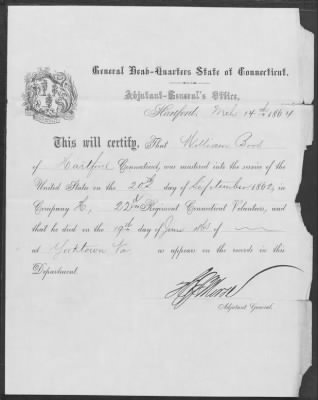 General Head-Quarters State of Connecticut.
Adjutant-General's Office,
Hartford, Mch 14th 1864
This will certify, That William Bood
of Hartford Connecticut, was mustered into the service of the
United States on the 20th day of September 1862, in
Company H, 22nd Regiment Connecticut Volunteers, and
that he died on the 19th day of June 1863
at Yorktown Va as appears on the records in this
Department.
Adjutant General.